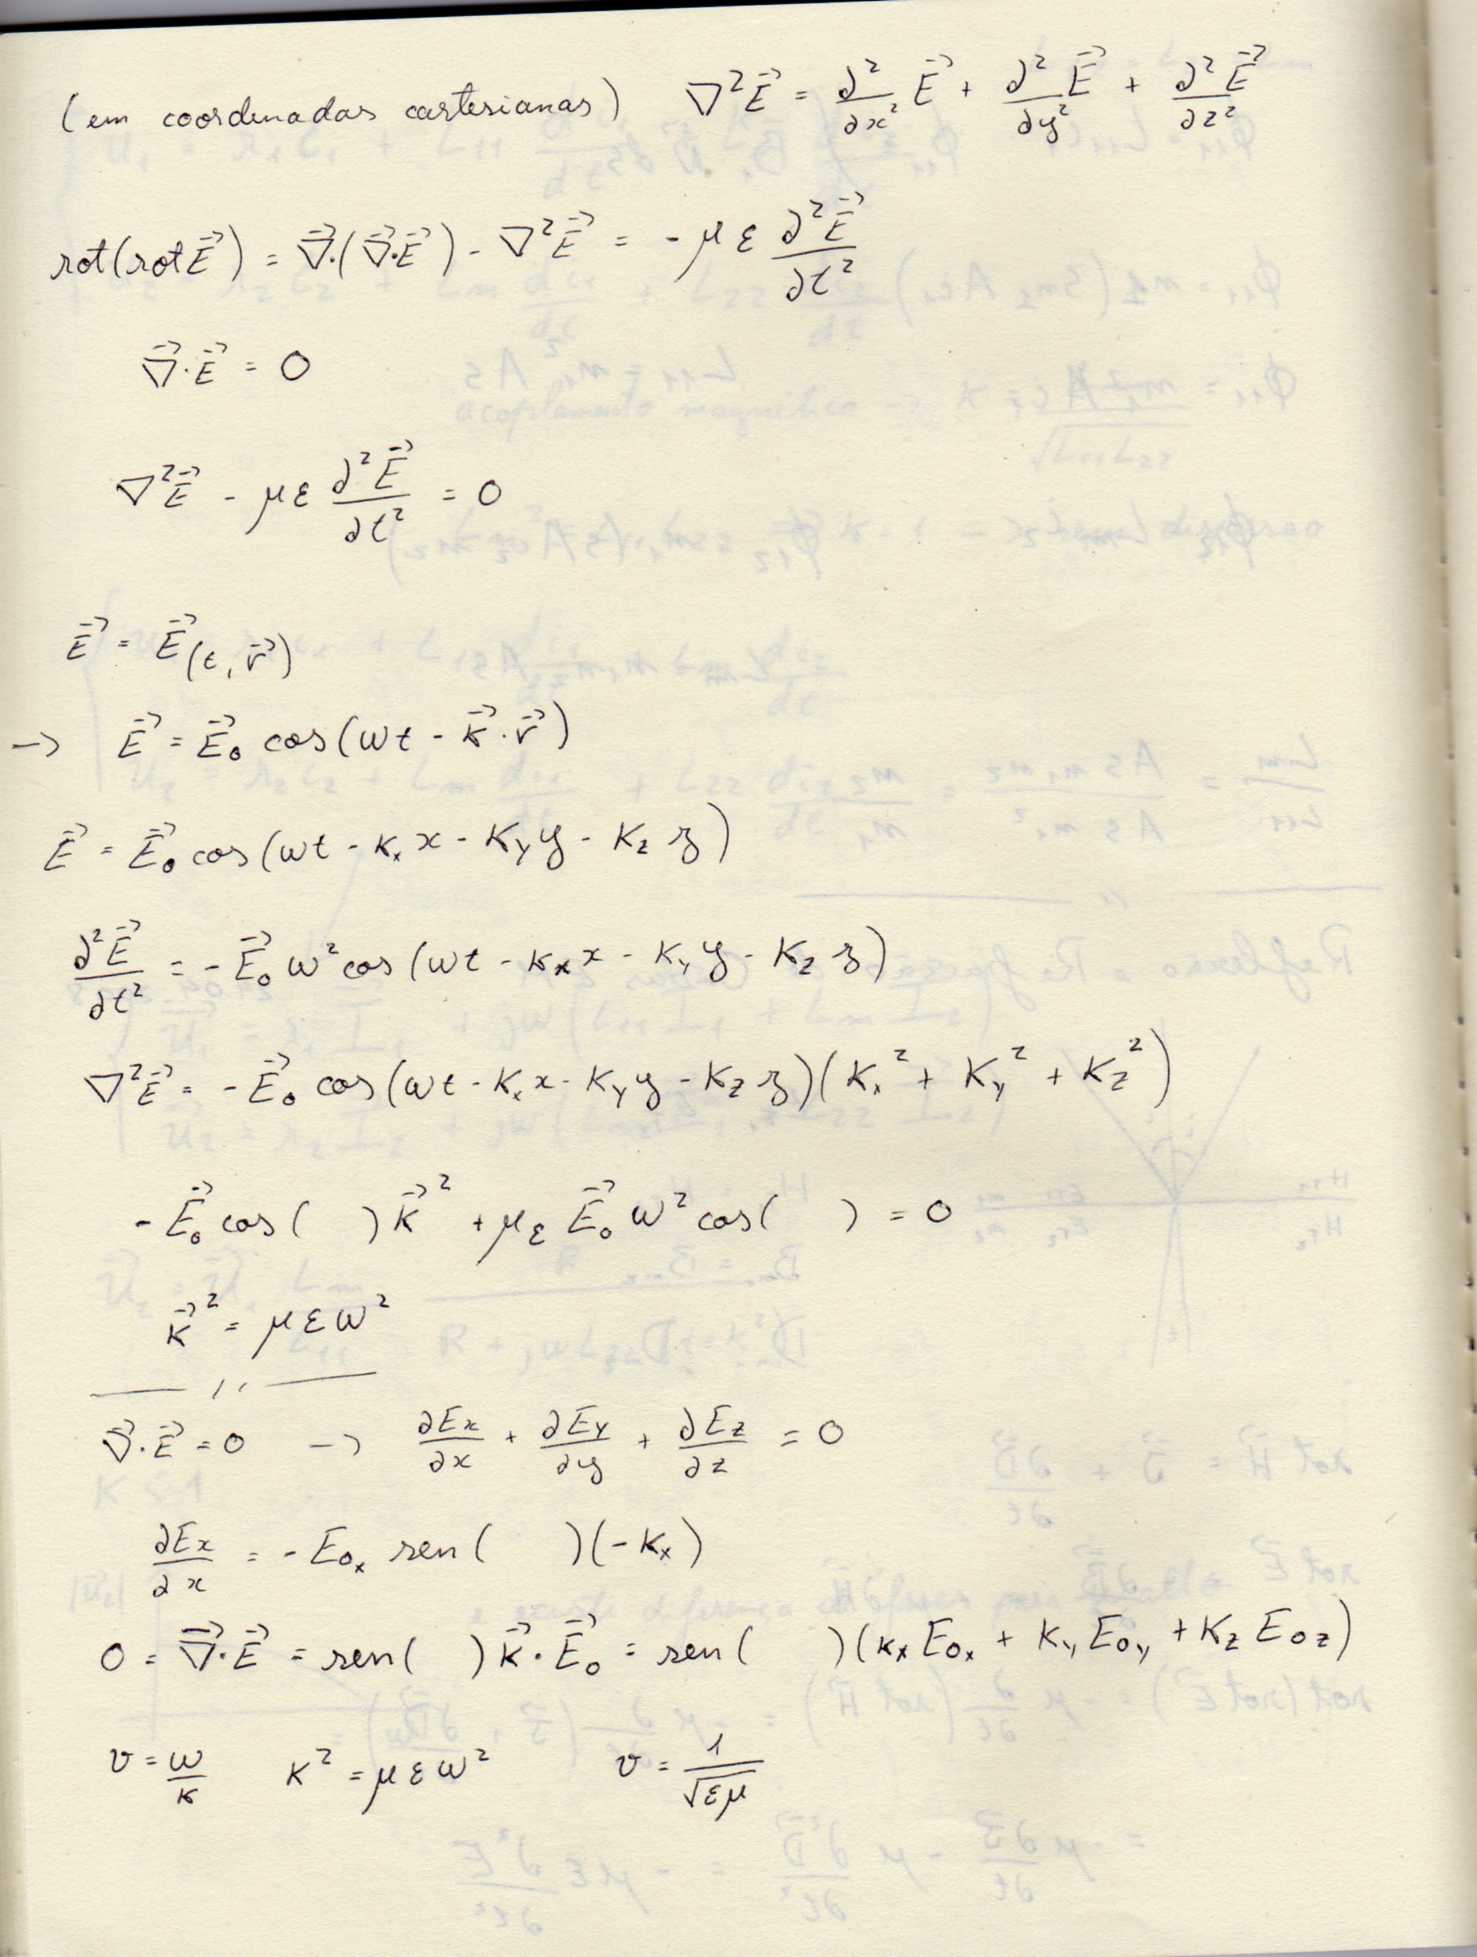 (em coordenadas cartesianas) ∇²E⃗ = ∂²/∂x² E⃗ + ∂²E⃗/∂y² + ∂²E⃗/∂z²
rot(rot E⃗) = ∇⃗·(∇⃗·E⃗) - ∇²E⃗ = -με ∂²E⃗/∂t²
∇⃗·E⃗ = 0
∇²E⃗ - με ∂²E⃗/∂t² = 0
E⃗ = E⃗(t, r⃗)
→ E⃗ = E⃗₀ cos(ωt - K⃗·r⃗)
E⃗ = E⃗₀ cos(ωt - Kₓx - K_y y - K_z z)
∂²E⃗/∂t² = -E⃗₀ ω² cos(ωt - Kₓx - K_y y - K_z z)
∇²E⃗ = -E⃗₀ cos(ωt - Kₓx - K_y y - K_z z)(Kₓ² + K_y² + K_z²)
-E⃗₀ cos( )K⃗² + με E⃗₀ ω² cos( ) = 0
K⃗² = μεω²
∇⃗·E⃗ = 0 → ∂Ex/∂x + ∂Ey/∂y + ∂Ez/∂z = 0
∂Ex/∂x = -E₀ₓ sen( )(-Kₓ)
0 = ∇⃗·E⃗ = sen( )K⃗·E⃗₀ = sen( )(Kₓ E₀ₓ + K_y E₀y + K_z E₀z)
v = ω/K K² = μεω² v = 1/√εμ